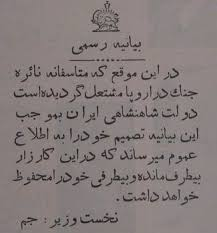 بیانیه رسمی
در این موقع که متاسفانه نائره
جنك در اروپا مشتعل گردیده است
دولت شاهنشاهی ایران بموجب
این بیانیه تصمیم خود را به اطلاع
عموم میرساند که در این کارزار
بیطرف مانده و بیطرفی خود را محفوظ
خواهد داشت .
نخست وزیر : جم